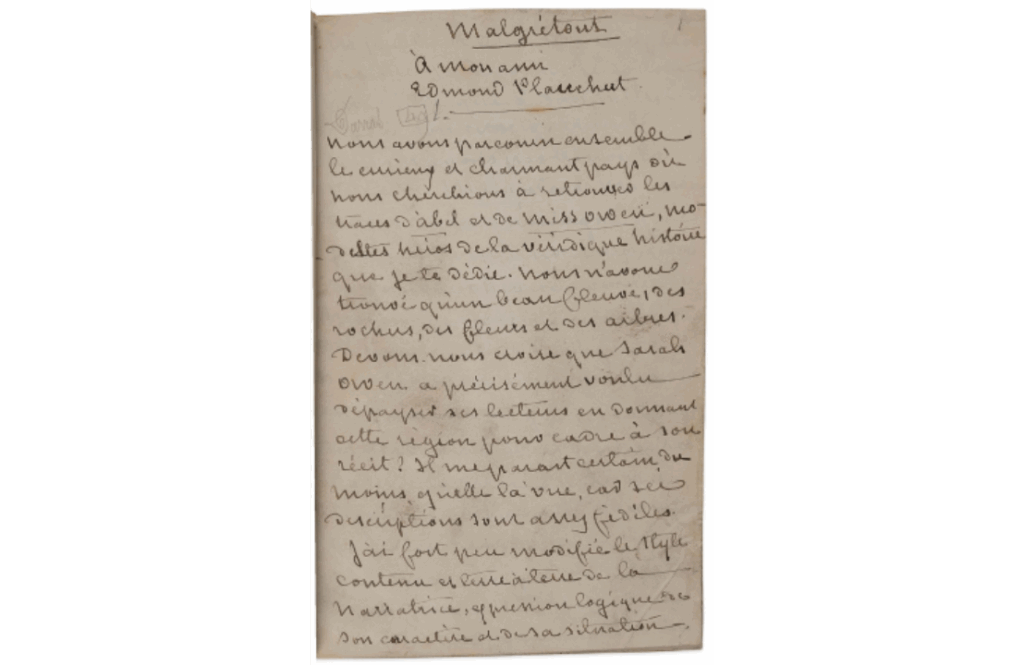 Malgrétout
1
À mon ami
Edmond Plauchut.
1.
nous avons parcouru ensemble
le curieux et charmant pays où
nous cherchions à retrouver les
traces d'abel et de miss owen, mo-
destes héros de la véridique histoire
que je te dédie. nous n'avons
trouvé qu'un beau fleuve, des
rochers, des fleurs et des arbres.
Devons-nous croire que Sarah
owen a précisément voulu
dépayser ses lecteurs en donnant
cette région pour cadre à son
récit? Il me parait certain, du
moins, qu'elle l'a vue, car ses
descriptions sont assez fidèles.
J'ai fort peu modifié le style
contenu et terre à terre de la
narratrice, expression logique de
son caractère et de sa situation.